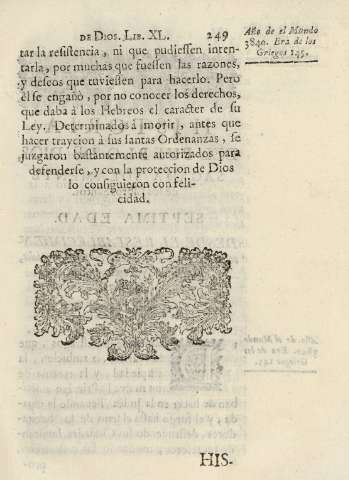 DE DIOS. LIB. XL. 249
Año de el Mundo
3840. Era de los
Griegos 145.
tar la resistencia, ni que pudiessen inten-
tarla, por muchas que fuessen las razones,
y deseos que tuviessen para hacerlo. Pero
èl se engañò, por no conocer los derechos,
que daba à los Hebreos el caracter de su
Ley. Determinados à morir, antes que
hacer traycion à sus santas Ordenanzas, se
juzgaron bastantemente autorizados para
defenderse, y con la proteccion de Dios
lo consiguieron con feli-
cidad.
HIS-